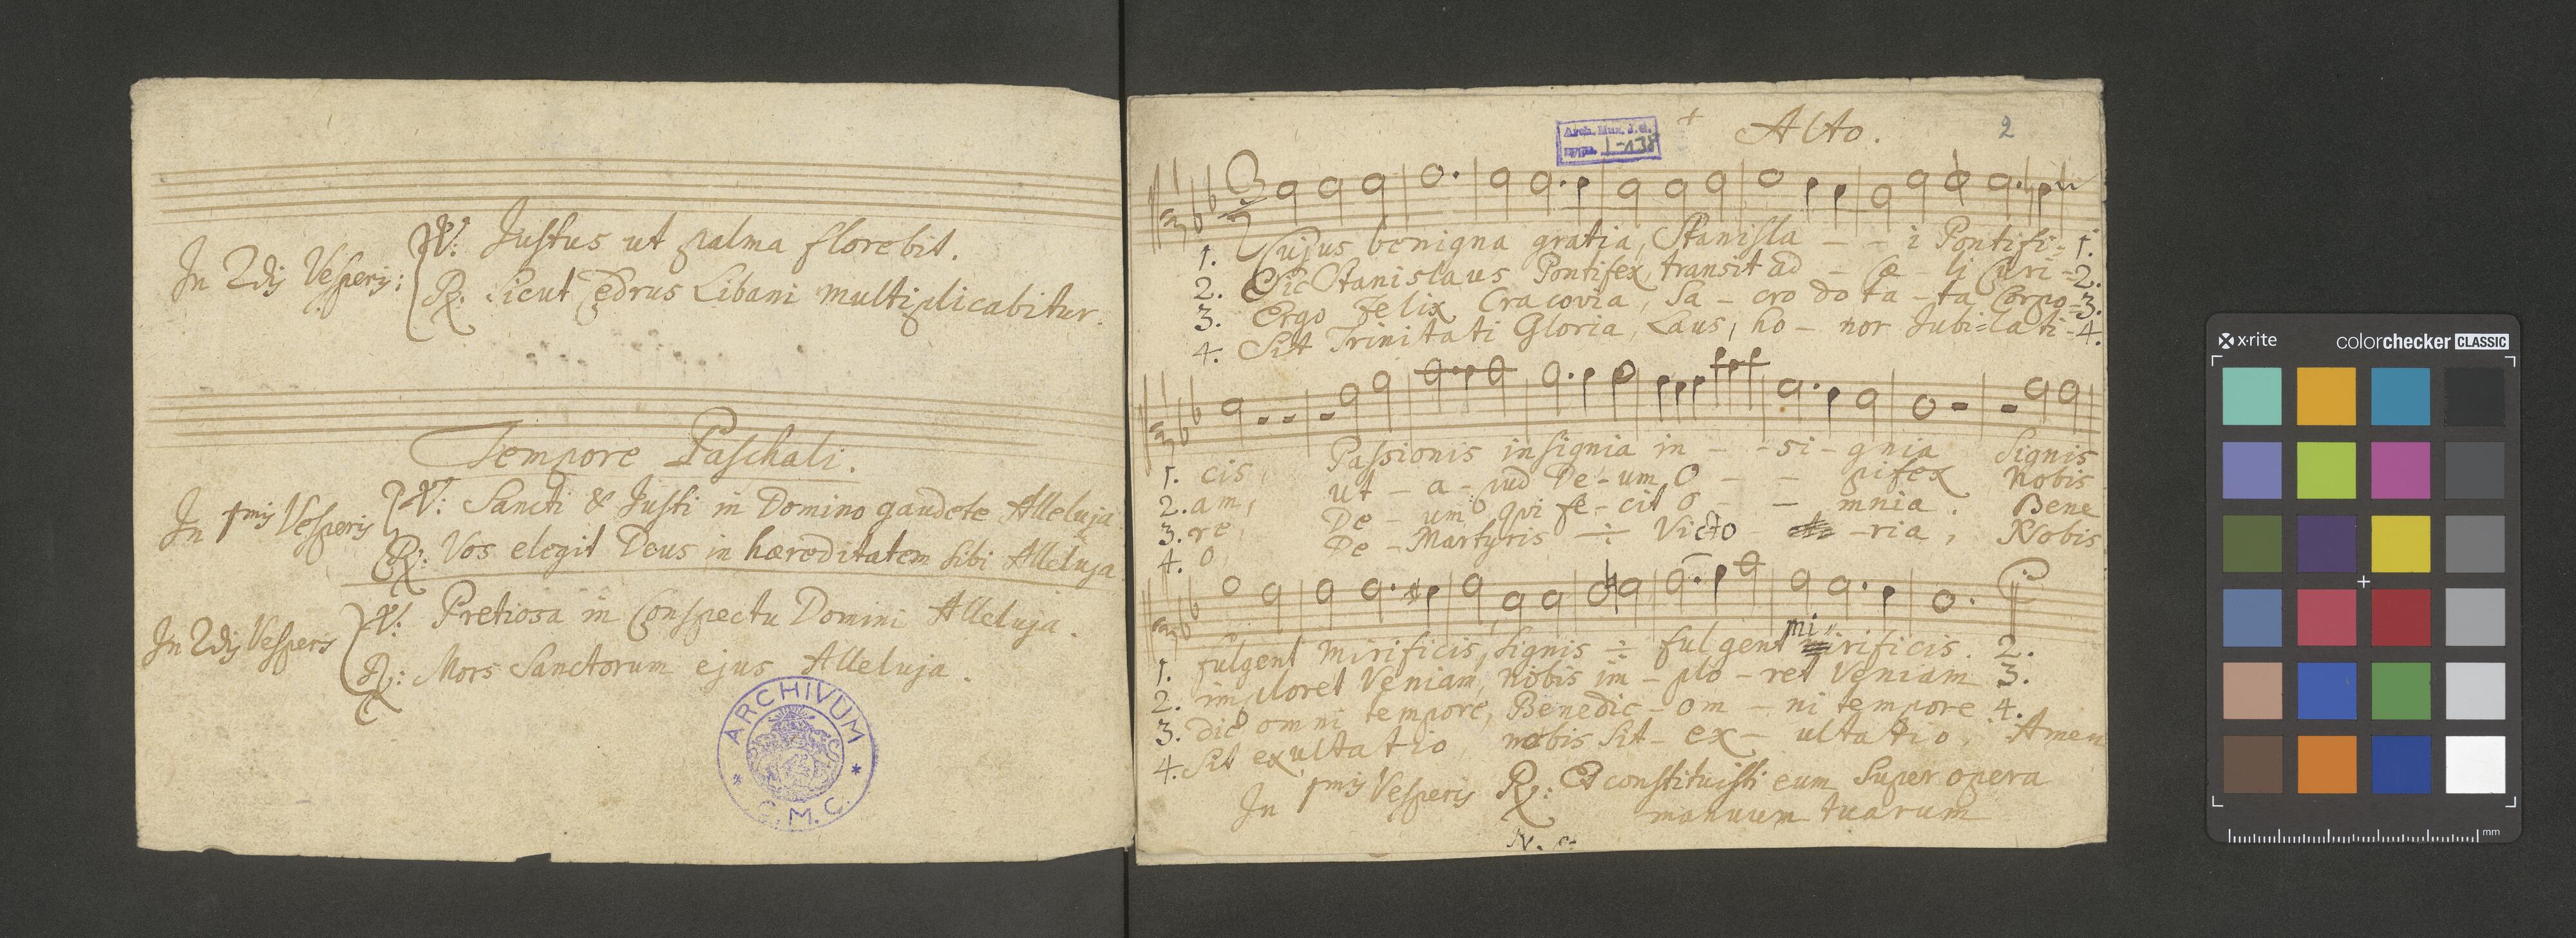 In 2dis Vesperis: ℣: Justus ut palma florebit.
℟: Sicut Cedrus Libani multiplicabitur.
Tempore Paschali.
In 1mis Vesperis ℣: Sancti & Justi in Domino gaudete Alleluja
℟: Vos elegit Deus in hæreditatem sibi Alleluja
In 2dis Vesperis ℣: Pretiosa in Conspectu Domini Alleluja.
℟: Mors Sanctorum ejus Alleluja.
ARCHIVUM
C. M. C.
Alto. 2
I-138
1. Cujus benigna gratia, Stanisla - - i Pontifi= 1.
2. Sic Stanislaus Pontifex transit ad - Cæ - li Curi =2.
3. Ergo Felix Cracovia, Sa - cro do ta - ta Corpo =3.
4. Sit Trinitati Gloria, Laus, ho - nor Jubi=lati -4.
1. cis, Passionis insignia in - - si - gnia Signis
2. am, ut - a - pud De - um O - - pifex Nobis
3. re, De - um qui fe - cit o - - mnia. Bene
4. o, De - Martyris ÷ Victo - - ria, Nobis
1. fulgent mirificis, signis ÷ fulgent mirificis. 2.
2. imploret Veniam, nobis im - plo - ret Veniam 3.
3. dic omni tempore, Benedic - om - ni tempore 4.
4. Sit exultatio nobis Sit - ex - ultatio, Amen
In 1mis Vesperis ℟: Et constituisti eum Super opera
manuum tuarum
x-rite colorchecker CLASSIC
mm